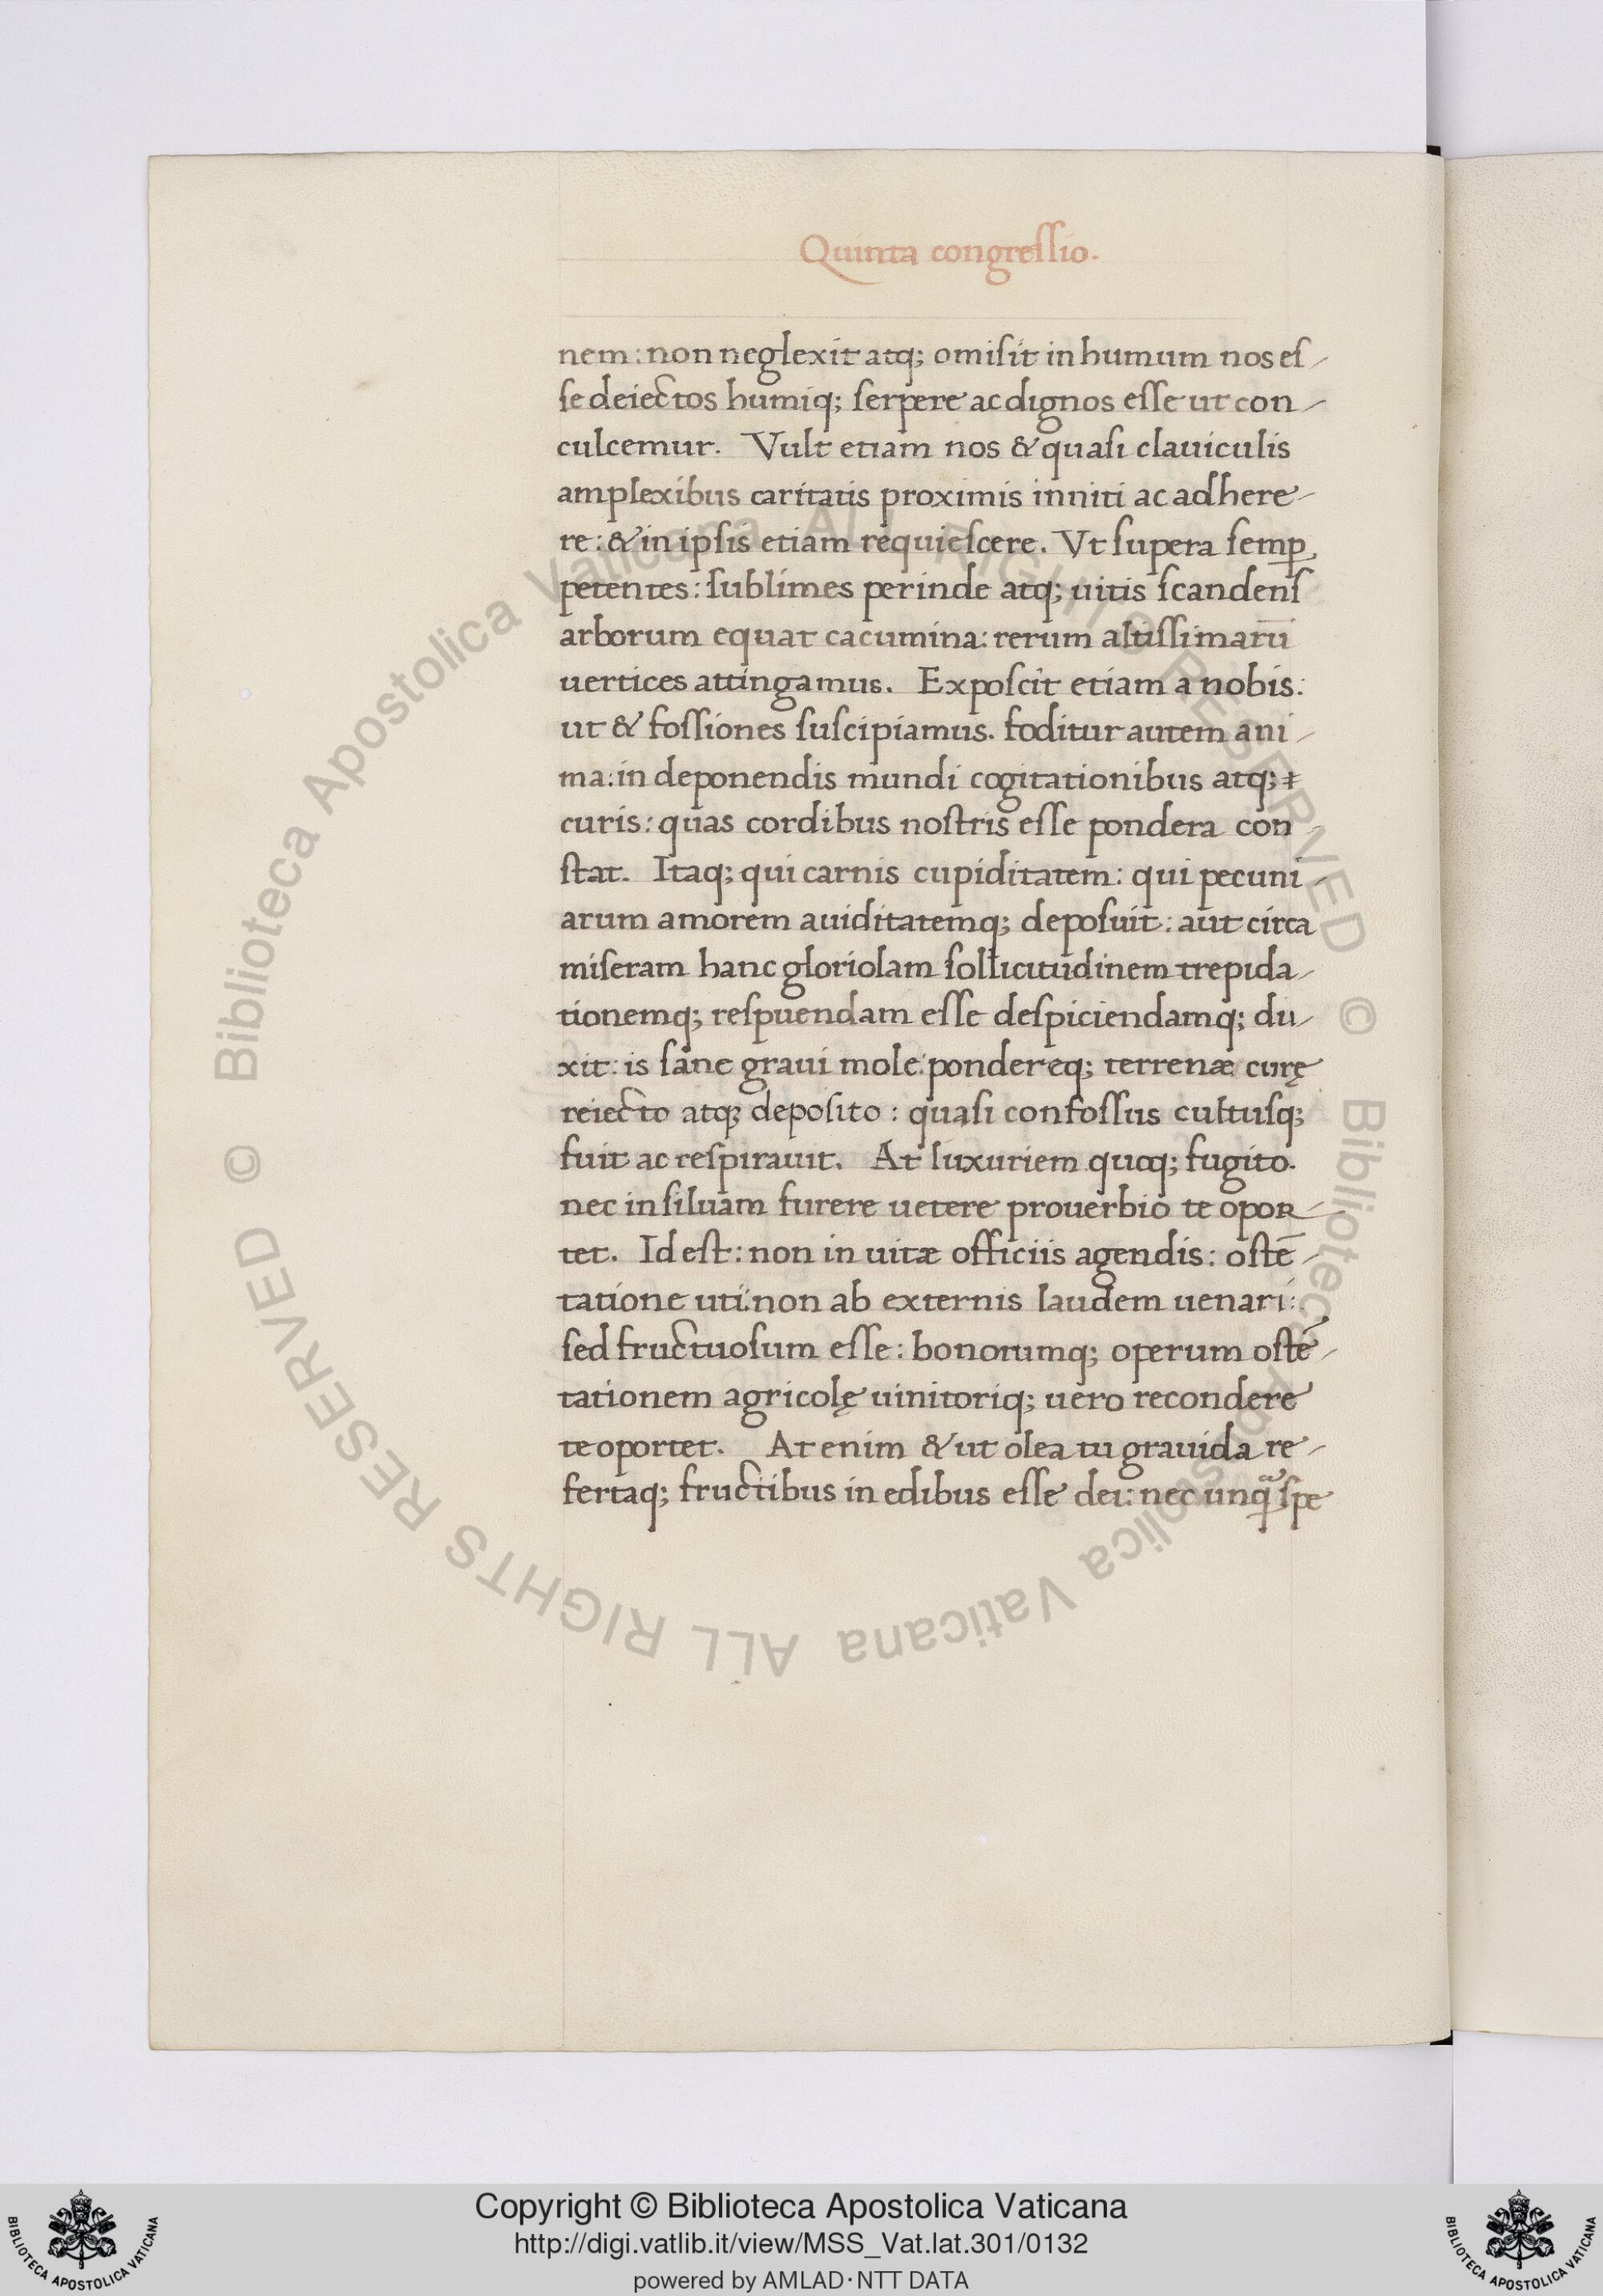 Quinta congreſſio.
nem: non neglexit atq; omiſit in humum nos eſ-
ſe deiectos humiq; ſerpere ac dignos eſſe ut con-
culcemur. Vult etiam nos & quaſi clauiculis
amplexibus caritatis proximis inniti ac adhere-
re: & in ipſis etiam requieſcere. Vt ſupera ſemꝑ
petentes: ſublimes perinde atq; uitis ſcandenſ
arborum equat cacumina: rerum altiſſimarū
uertices attingamus. Expoſcit etiam a nobis:
ut & foſſiones ſuſcipiamus. foditur autem ani-
ma: in deponendis mundi cogitationibus atq;
curis: quas cordibus noſtris eſſe pondera con-
ſtat. Itaq; qui carnis cupiditatem: qui pecuni-
arum amorem auiditatemq; depoſuit: aut circa
miſeram hanc gloriolam ſollicitudinem trepida-
tionemq; reſpuendam eſſe deſpiciendamq; du-
xit: is ſane graui mole: pondereq; terrenæ curę
reiecto atq; depoſito: quaſi confoſſus cultuſq;
fuit ac reſpirauit. At luxuriem quoq; fugito.
nec in ſiluam furere uetere prouerbio te opor-
tet. Id eſt: non in uitæ officiis agendis: oſtē-
tatione uti: non ab externis laudem uenari:
ſed fructuoſum eſſe: bonorumq; operum oſtē-
tationem agricolę uinitoriq; uero recondere
te oportet. At enim & ut olea tu grauida re-
fertaq; fructibus in edibus eſſe dei: nec unqᷓ ſpe
© Biblioteca Apostolica Vaticana ALL RIGHTS RESERVED © Biblioteca Apostolica Vaticana ALL RIGHTS RESERVED
Copyright © Biblioteca Apostolica Vaticana
http://digi.vatlib.it/view/MSS_Vat.lat.301/0132
powered by AMLAD·NTT DATA
BIBLIOTECA APOSTOLICA VATICANA
BIBLIOTECA APOSTOLICA VATICANA